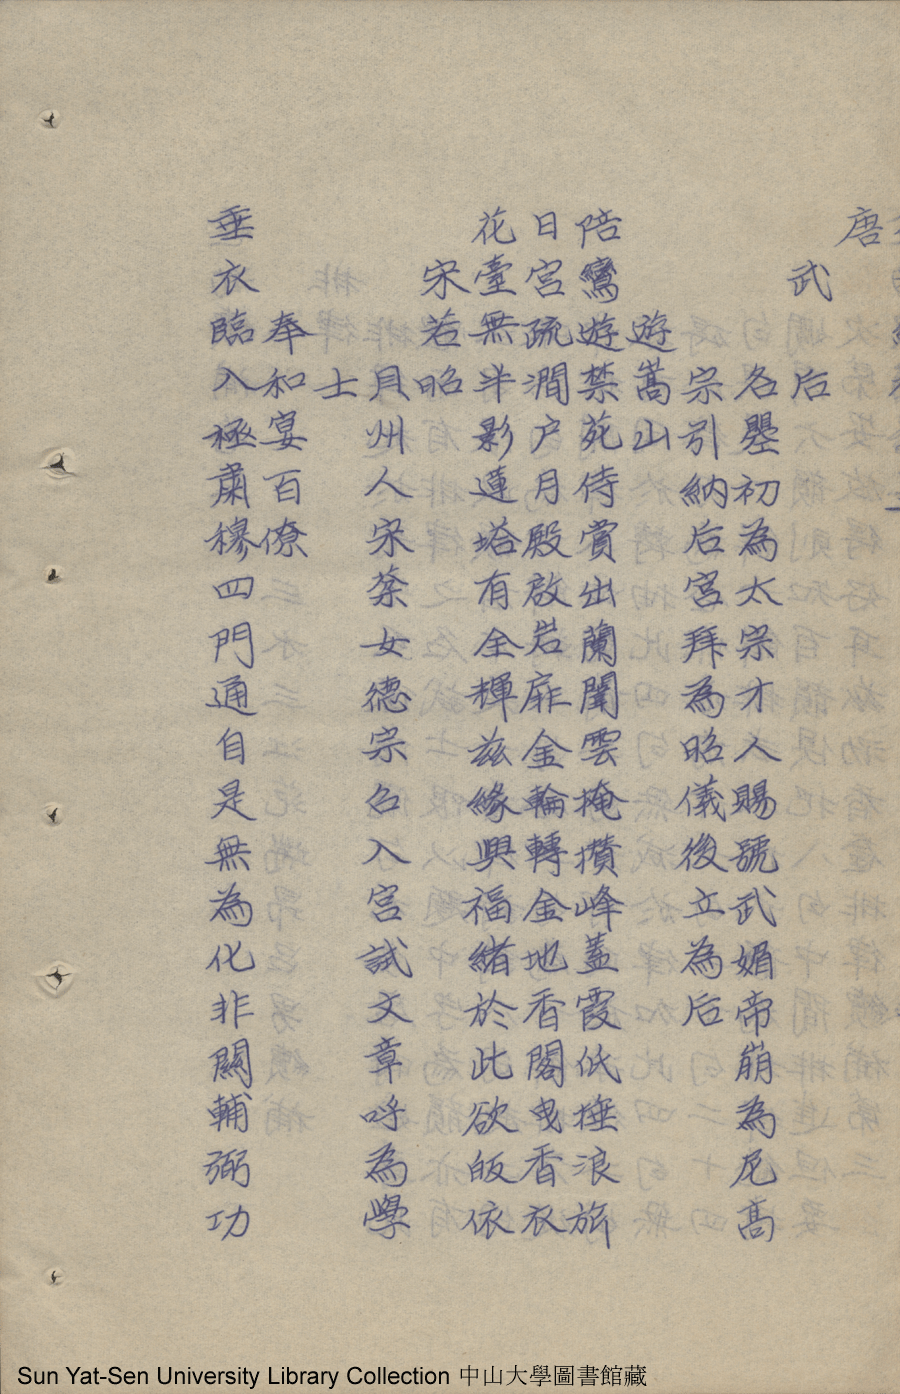 唐
武后
名曌初為太宗才人賜號武媚帝崩為尼高
宗引納后宮拜為昭儀後立為后
遊嵩山
陪鸞遊禁苑侍賞出蘭闈雲掩攢峰蓋霞低捶浪旂
日宮疏澗户月殿啟岩扉金輪轉金地香閣曳香衣
花臺無半影蓮塔有全輝兹緣興福緒於此欲皈依
宋若昭
貝州人宋棻女德宗召入宮試文章呼為學
士
奉和宴百僚
垂衣臨入極肅穆四門通自是無為化非關輔弼功
Sun Yat-Sen University Library Collection 中山大學圖書館藏